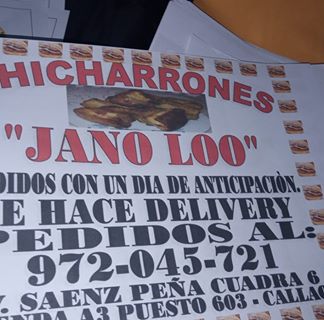 HICHARRONES
"JANO LOO"
DIDOS CON UN DIA DE ANTICIPACIÓN.
E HACE DELIVERY
PEDIDOS AL:
972-045-721
V. SAENZ PEÑA CUADRA 6
ENDA A3 PUESTO 603 - CALLAO